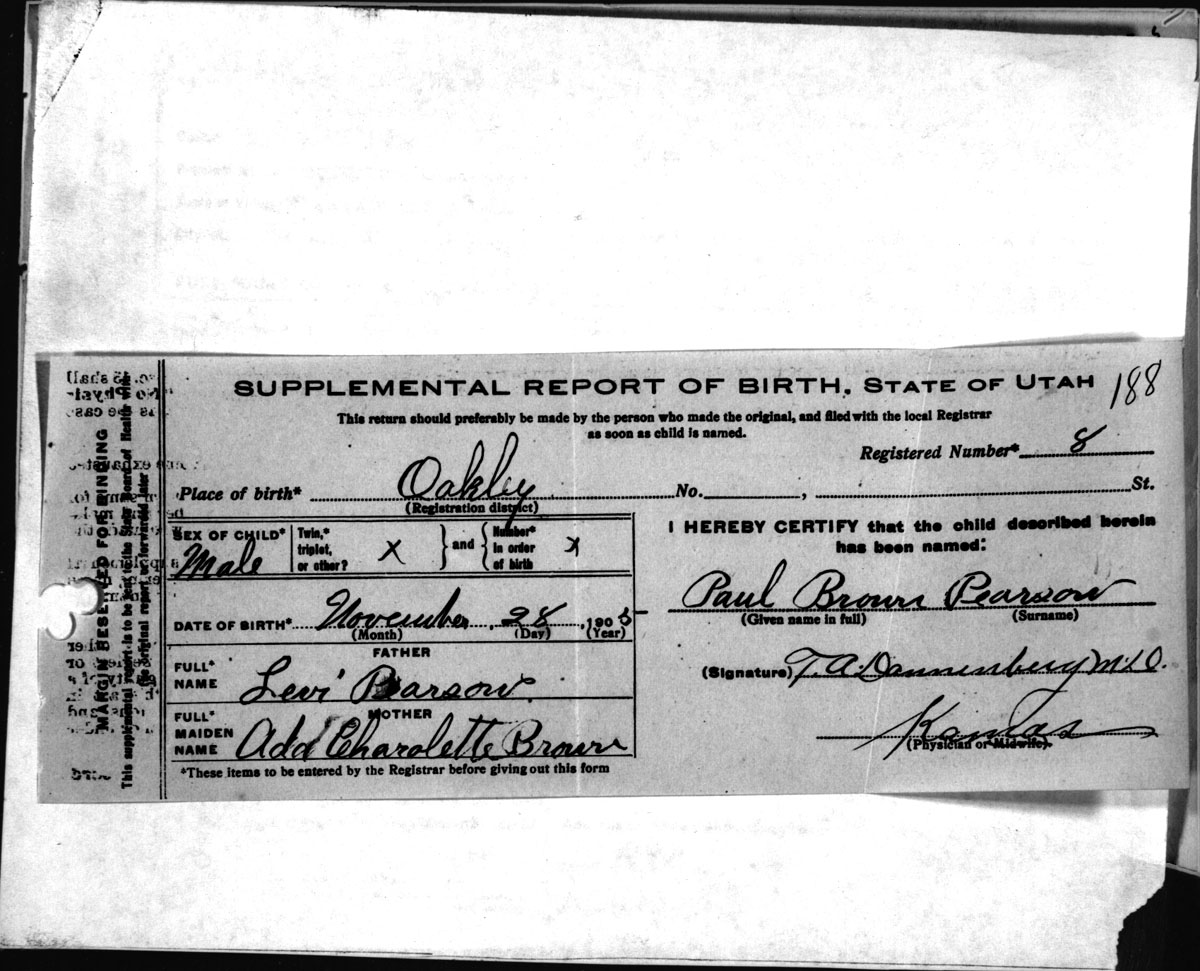 SUPPLEMENTAL REPORT OF BIRTH, STATE OF UTAH
188
This return should preferably be made by the person who made the original, and filed with the local Registrar
as soon as child is named.
Registered Number* 8
Place of birth* Oakley No. , St.
(Registration district)
SEX OF CHILD* Male
Twin,* triplet, or other? X
and
Number* in order of birth X
DATE OF BIRTH* November 28, 1905
(Month) (Day) (Year)
FATHER
FULL* NAME Levi Pearson
MOTHER
FULL* MAIDEN NAME Add Charolette Brown
*These items to be entered by the Registrar before giving out this form
I HEREBY CERTIFY that the child described herein
has been named:
Paul Brown Pearson
(Given name in full) (Surname)
(Signature) T. A. Dannenberg M.D.
Kamas
(Physician or Midwife).
MARGIN RESERVED FOR BINDING
This supplemental report is to be sent to the State Board of Health with
the original report or forwarded later